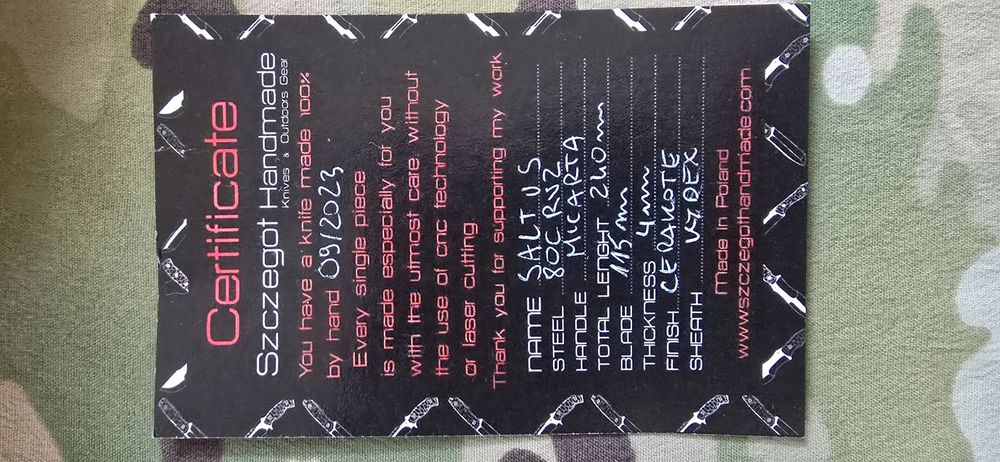 Certificate
Szczegot Handmade
Knives & Outdoors Gear
You have a knife made 100%
by hand 09/2023
Every single piece
is made especially for you
with the utmost care without
the use of cnc technology
or laser cutting
Thank you for supporting my work
NAME SALTUS
STEEL 80CRV2
HANDLE MICARTA
TOTAL LENGHT 240mm
BLADE 115mm
THICKNESS 4mm
FINISH CERAKOTE
SHEATH KYDEX
Made in Poland
www.szczegothandmade.com